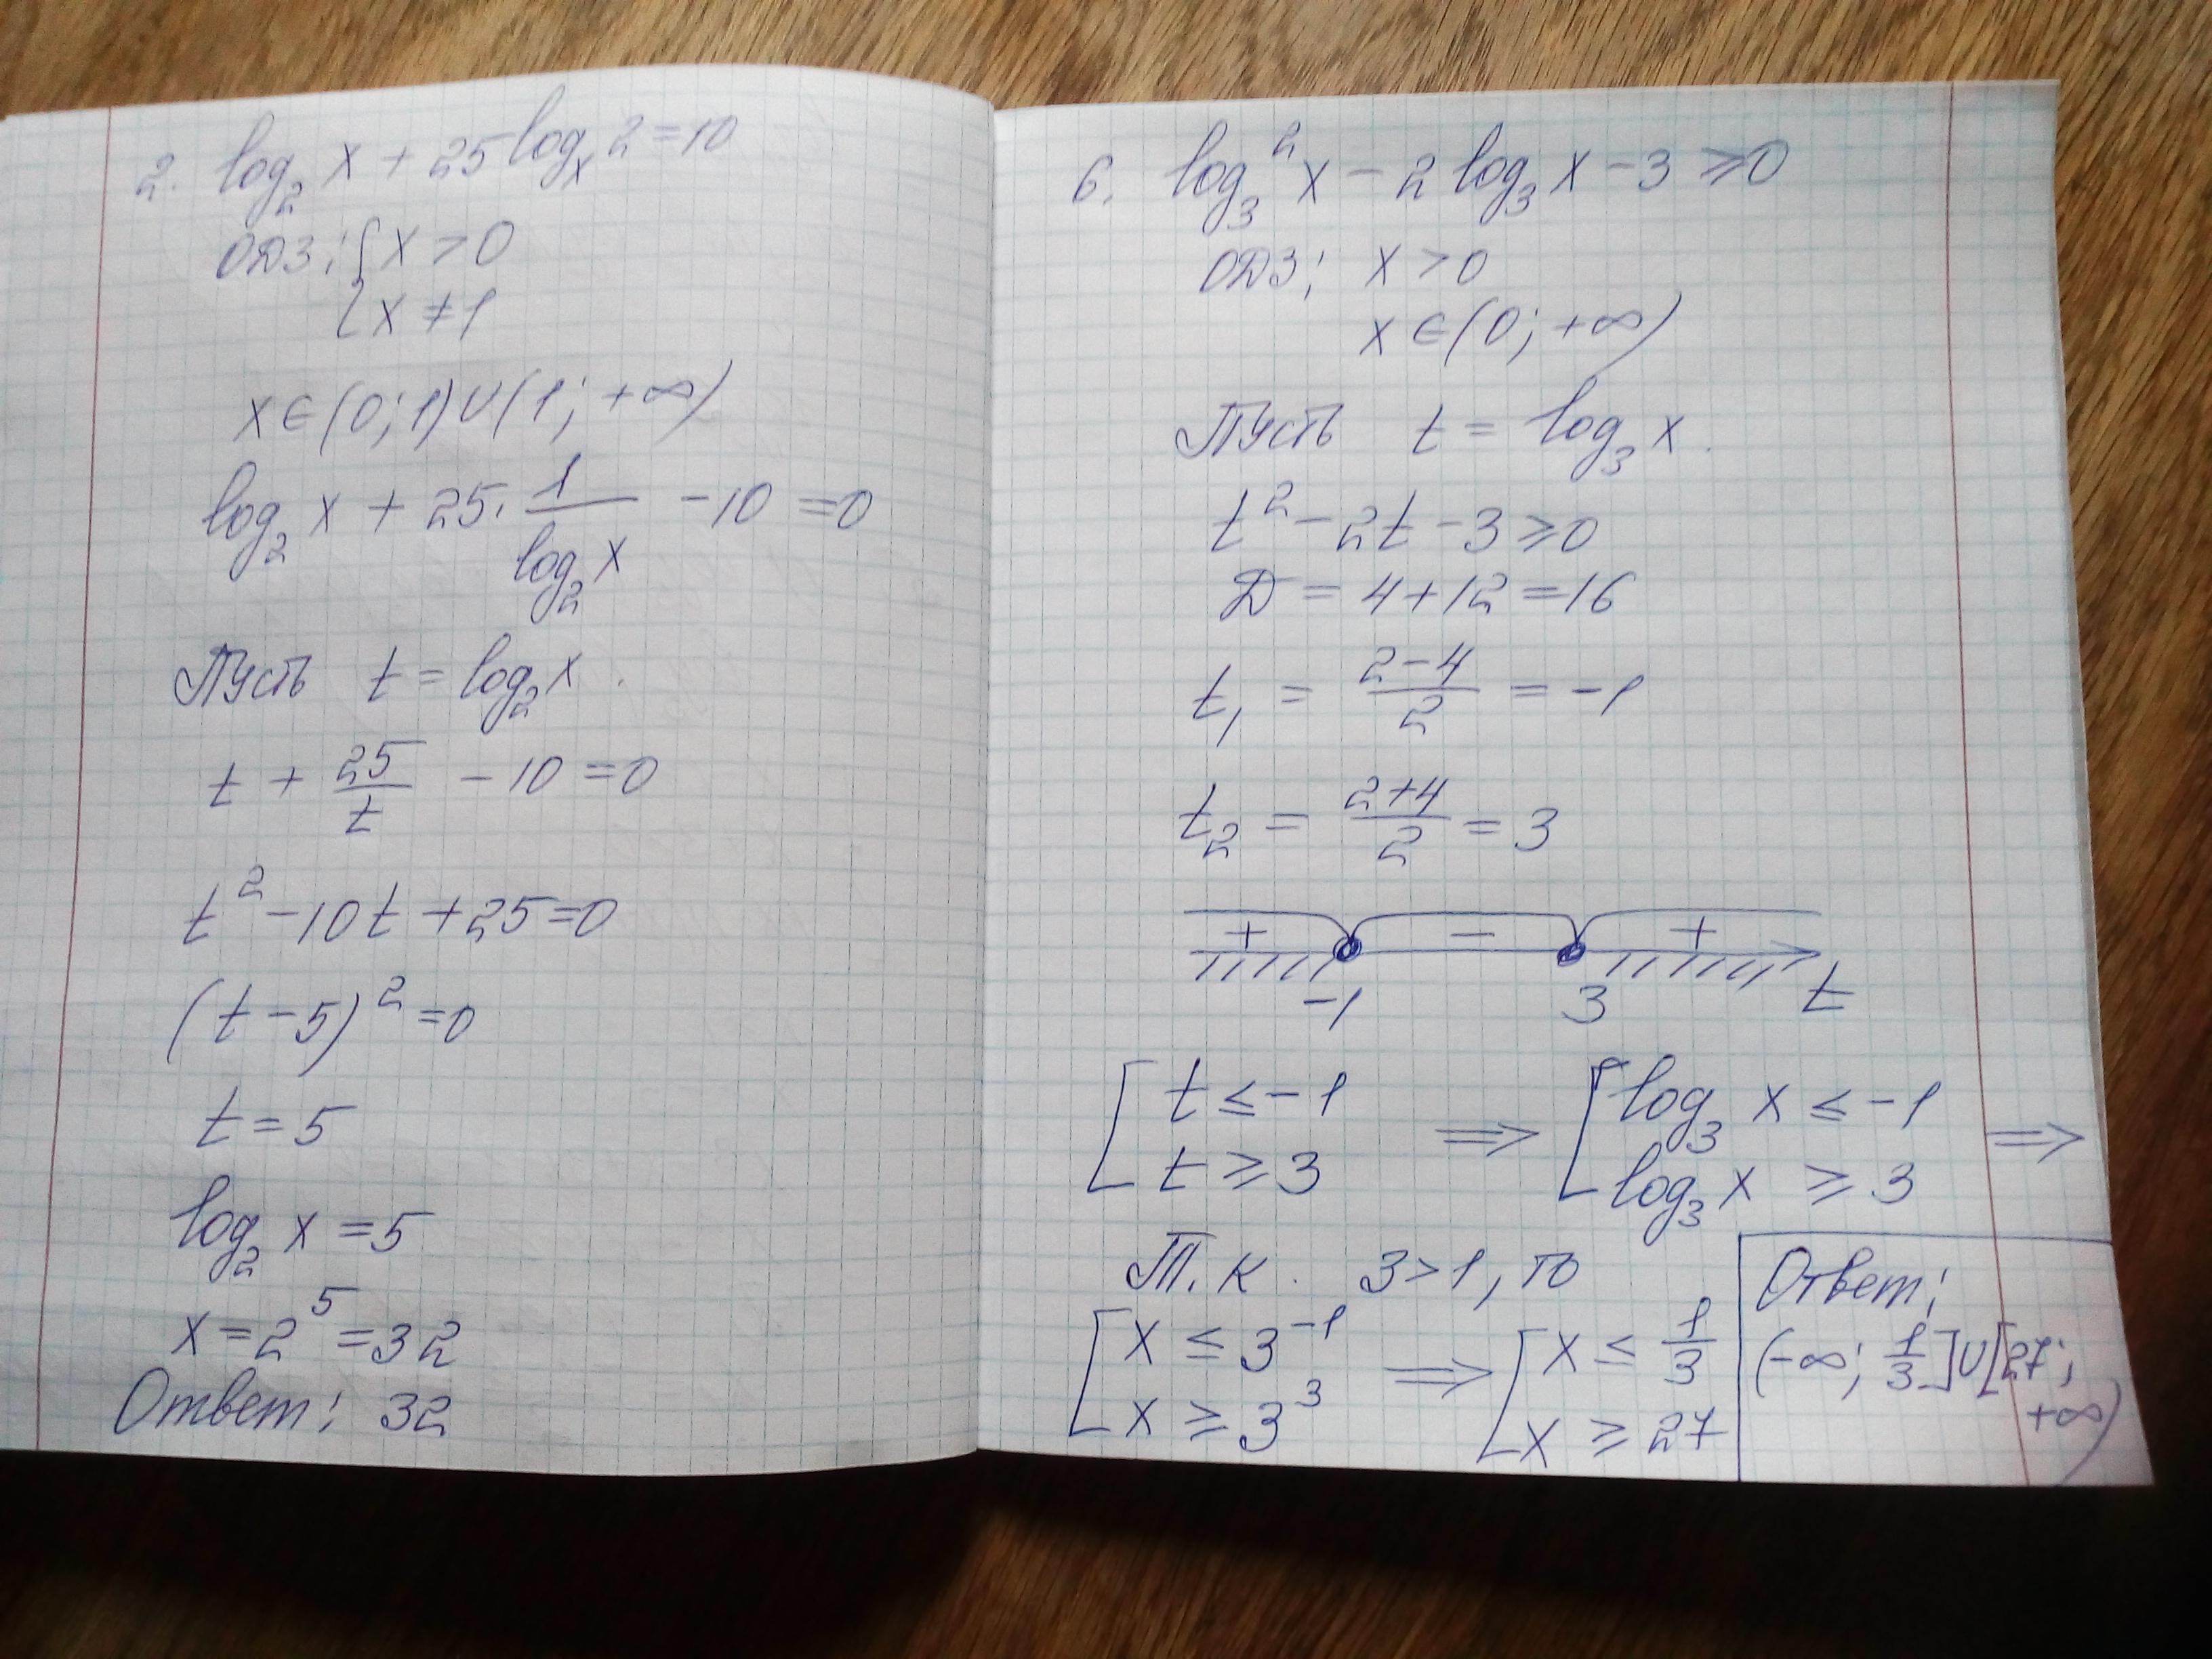 2. log₂ x + 25 logₓ 2 = 10
ОДЗ: { x > 0
{ x ≠ 1
x ∈ (0; 1) ∪ (1; +∞)
log₂ x + 25 · 1/(log₂ x) - 10 = 0
Пусть t = log₂ x .
t + 25/t - 10 = 0
t² - 10t + 25 = 0
(t - 5)² = 0
t = 5
log₂ x = 5
x = 2⁵ = 32
Ответ: 32
6. log₃² x - 2 log₃ x - 3 ≥ 0
ОДЗ: x > 0
x ∈ (0; +∞)
Пусть t = log₃ x .
t² - 2t - 3 ≥ 0
Д = 4 + 12 = 16
t₁ = (2-4)/2 = -1
t₂ = (2+4)/2 = 3
+ - +
-1 3 t
[ t ≤ -1 ⇒ [ log₃ x ≤ -1 ⇒
[ t ≥ 3 [ log₃ x ≥ 3
Т.к. 3 > 1, то
[ x ≤ 3⁻¹ ⇒ [ x ≤ 1/3
[ x ≥ 3³ [ x ≥ 27
Ответ:
(-∞; 1/3] ∪ [27;
+∞)